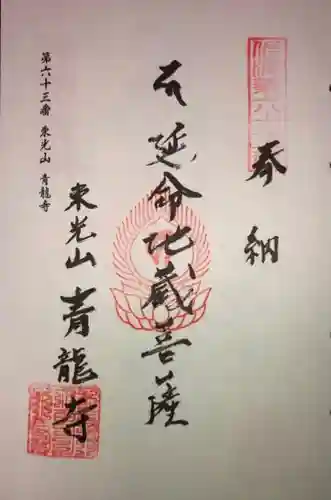 奉納
延命地蔵菩薩
東光山
青龍寺
第六十三番 東光山 青龍寺